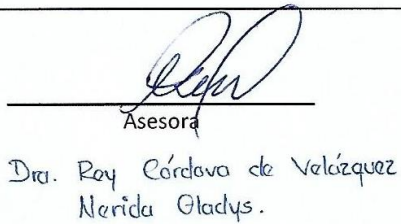 Asesora
Dra. Rey Córdova de Velázquez
Nerida Gladys.